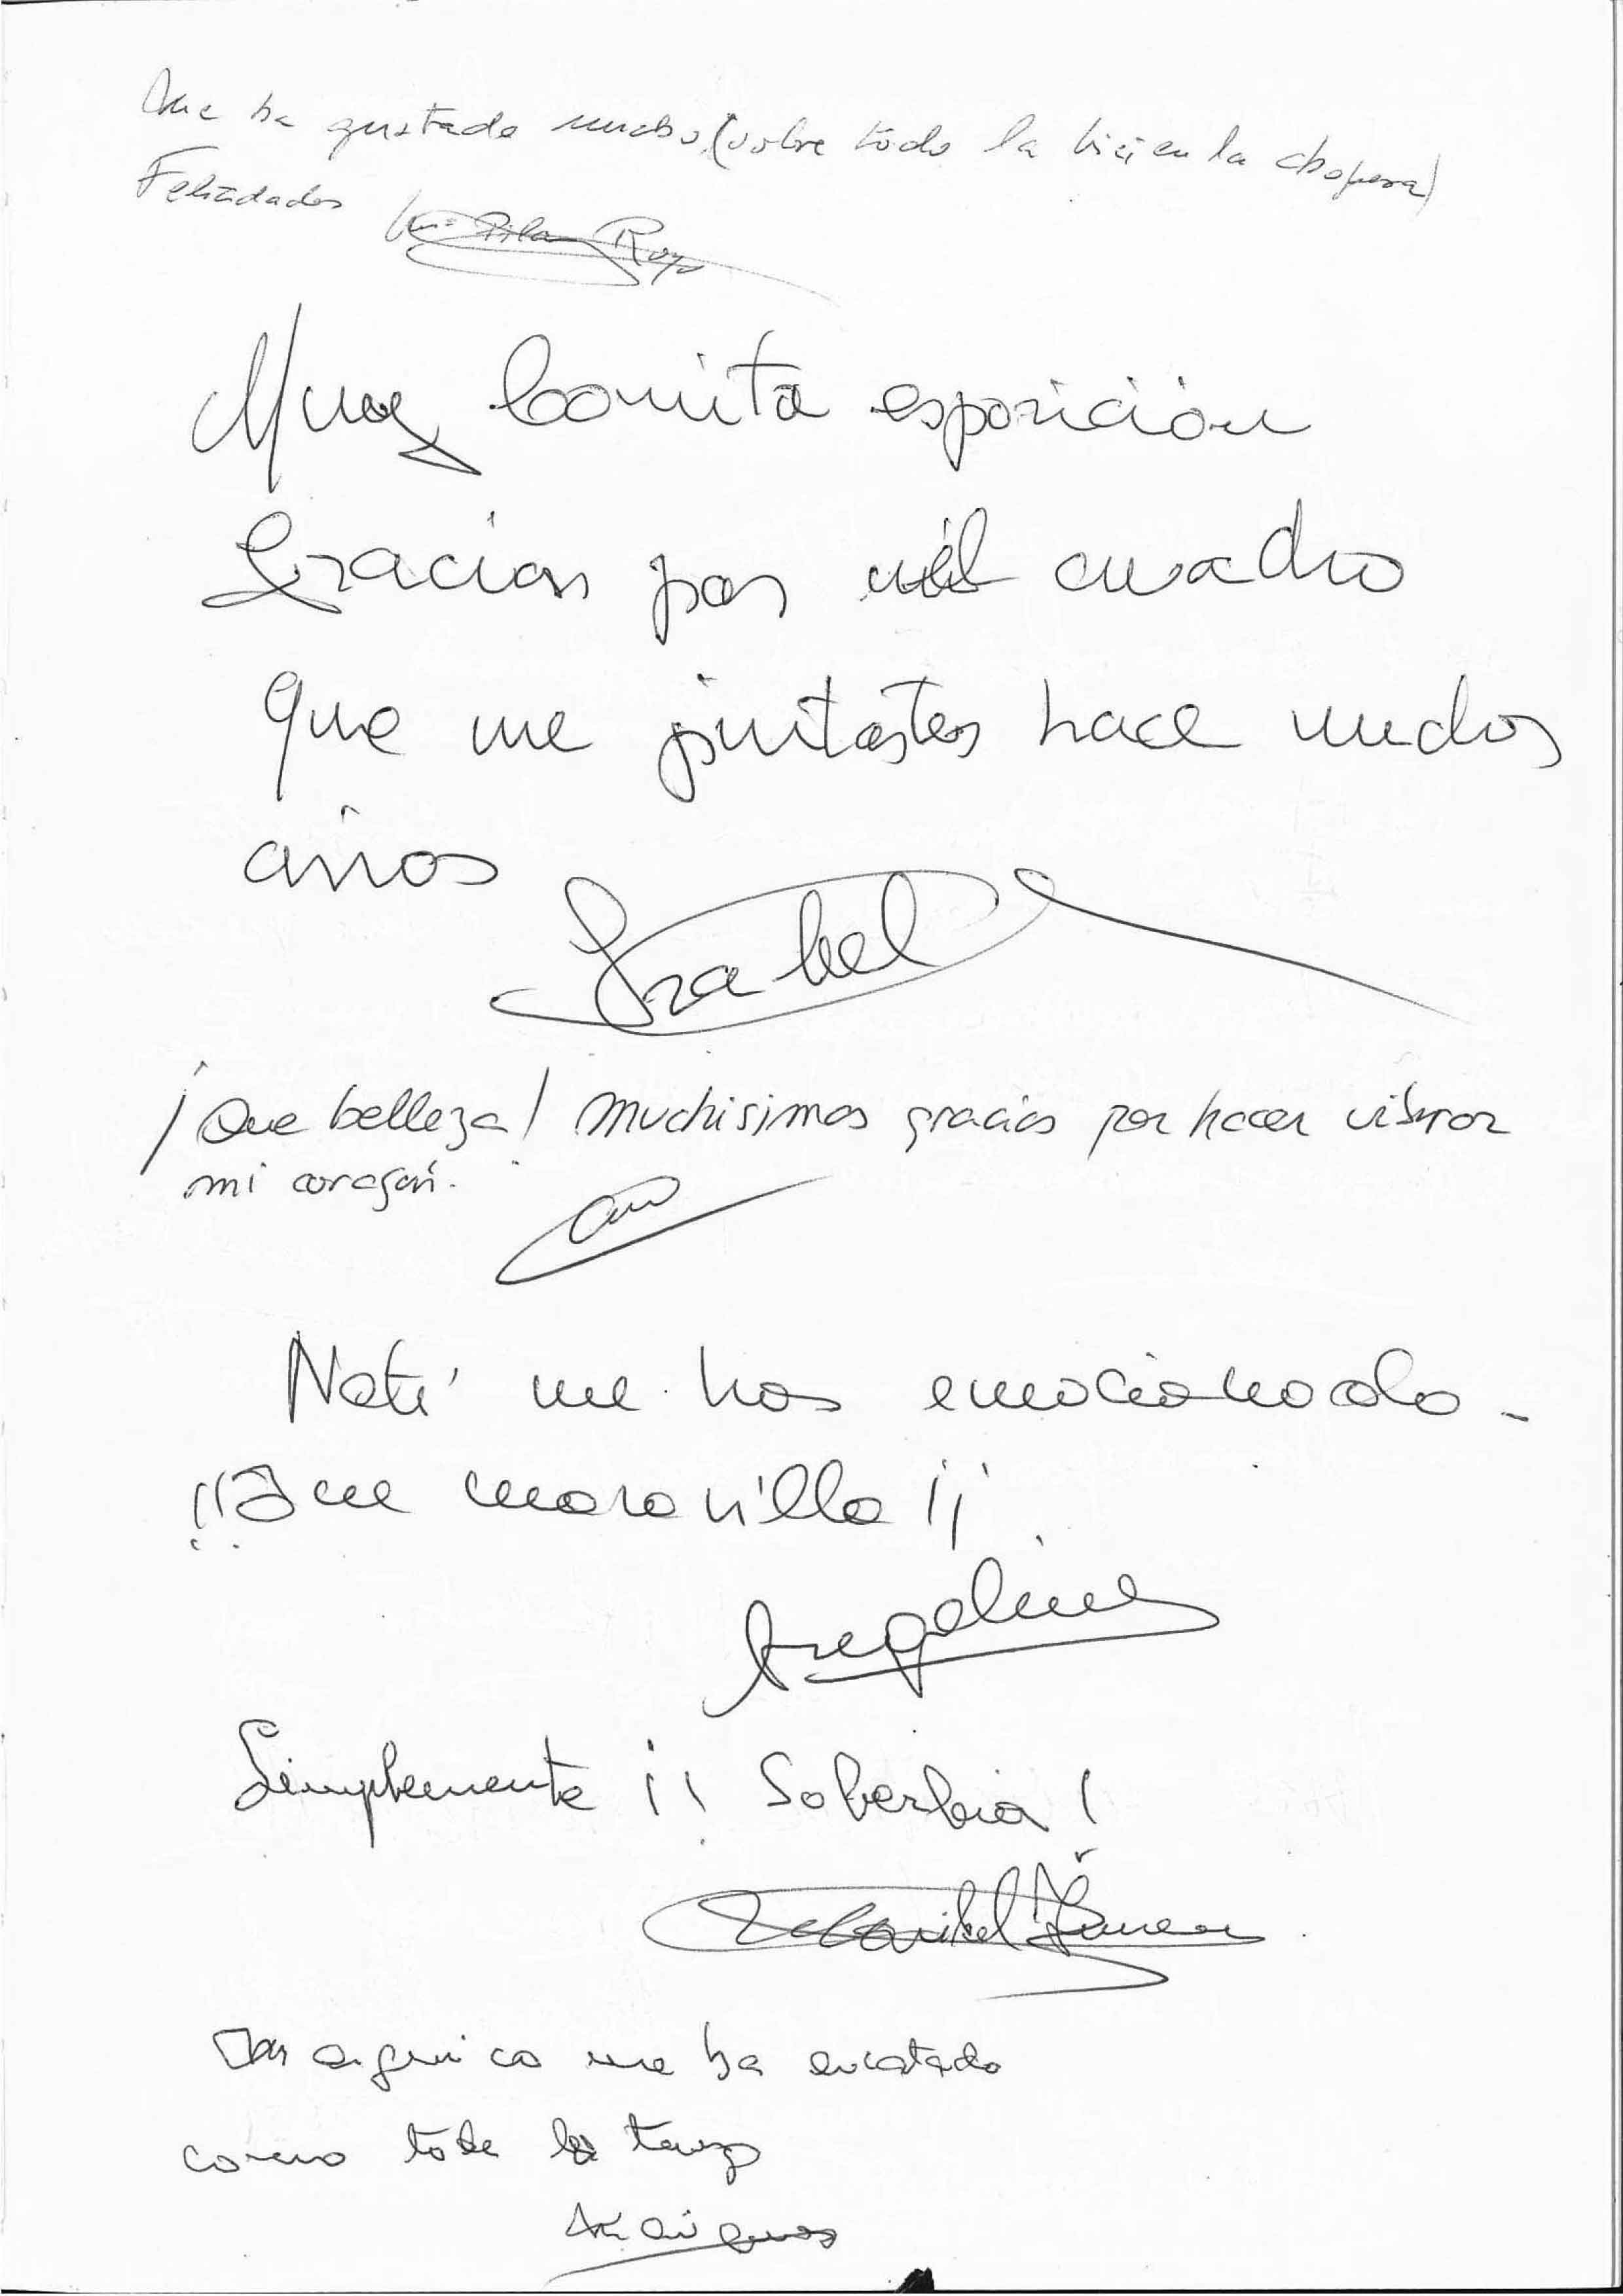 Me ha gustado mucho (sobre todo la bici en la chopera)
Felicidades Mª Pilar Royo
Muy bonita esposición
Gracias por el cuadro
que me pintastes hace muchos
años
Isabel
¡Que belleza! Muchisimas gracias por hacer vibrar
mi corazón.
Nati me has emocionado -
¡¡Que maravilla¡¡
Angelines
Simplemente ¡¡ Soberbia!
Maribel
Magnico me ha encatado
como todo lo